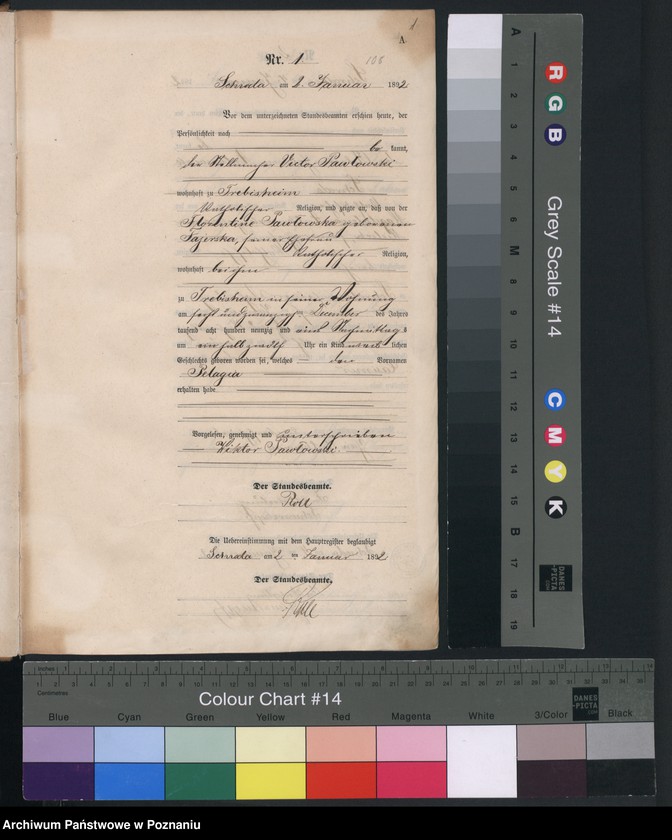 1
A.
Nr. 1
188
Schroda am 2. Januar 1892
Vor dem unterzeichneten Standesbeamten erschien heute, der
Persönlichkeit nach
be kannt,
der Victor Pawłowski
wohnhaft zu Trebisheim
katholischer Religion, und zeigte an, daß von der
Florentine Pawłowska geborenen
seiner Ehefrau
katholischer Religion,
wohnhaft bei ihm
zu Trebisheim in seiner Wohnung
am sechsundzwanzigsten December des Jahres
tausend acht hundert neunzig und eins Nachmittags
um ein halb zwölf Uhr ein Kind weib lichen
Geschlechts geboren worden sei, welches den Vornamen
Pelagia
erhalten habe
Vorgelesen, genehmigt und unterschrieben
Wiktor Pawłowski
Der Standesbeamte.
Roll
Die Uebereinstimmung mit dem Hauptregister beglaubigt
Schroda am 2 ten Januar 1892
Der Standesbeamte,
Grey Scale #14
A 1 2 3 4 5 6 M 8 9 10 11 12 13 14 15 B 17 18 19
R G B
C M Y K
DANES-PICTA
Inches
Centimetres
Colour Chart #14
DANES-PICTA
Blue Cyan Green Yellow Red Magenta White 3/Color Black
Archiwum Państwowe w Poznaniu